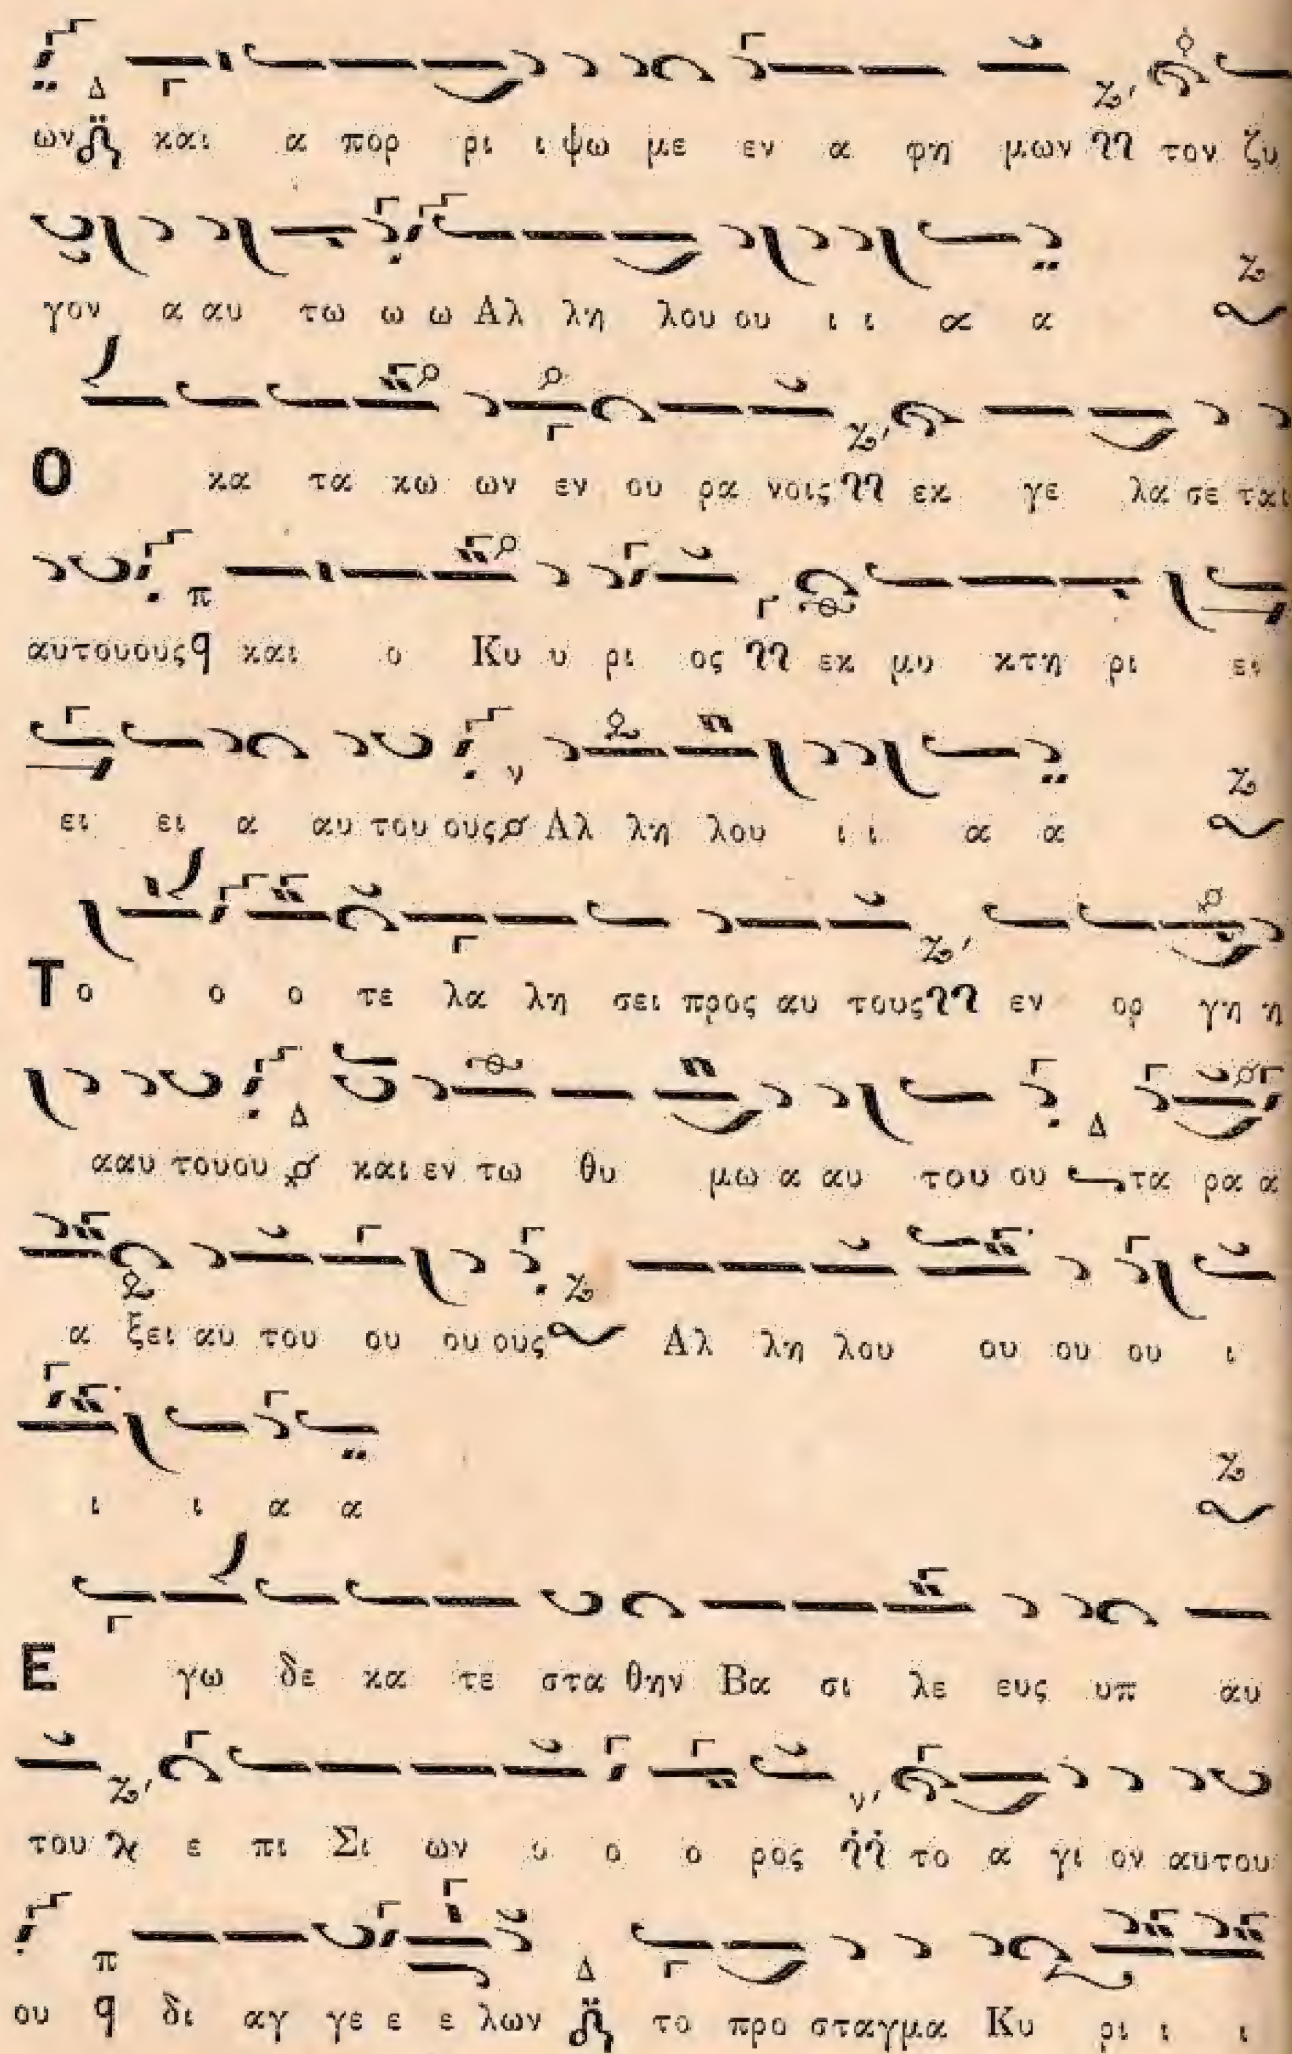 ων και α πορ ρι ι ψω με εν α φη μων τον ζυ
γον α αυ τω ω ω Αλ λη λου ου ι ι α α
Ο κα τα κω ων εν ου ρα νοις εκ γε λα σε ται
αυτουους και ο Κυ υ ρι ος εκ μυ κτη ρι ει
ει ει α αυ του ους Αλ λη λου ι ι α α
Το ο ο τε λα λη σει προς αυ τους εν ορ γη η
ααυ τουου και εν τω θυ μω α αυ του ου τα ρα α
α ξει αυ του ου ου ους Αλ λη λου ου ου ου ι
ι ι α α
Ε γω δε κα τε στα θην Βα σι λε ευς υπ αυ
του ε πι Σι ων ο ο ο ρος το α γι ον αυτου
ου δι αγ γε ε ε λων το προ σταγμα Κυ ρι ι ι